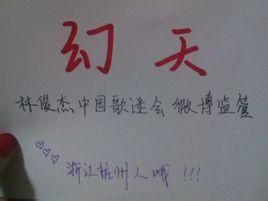 幻天
林俊杰中国歌迷会 微博监管
浙江杭州人哦 !!!